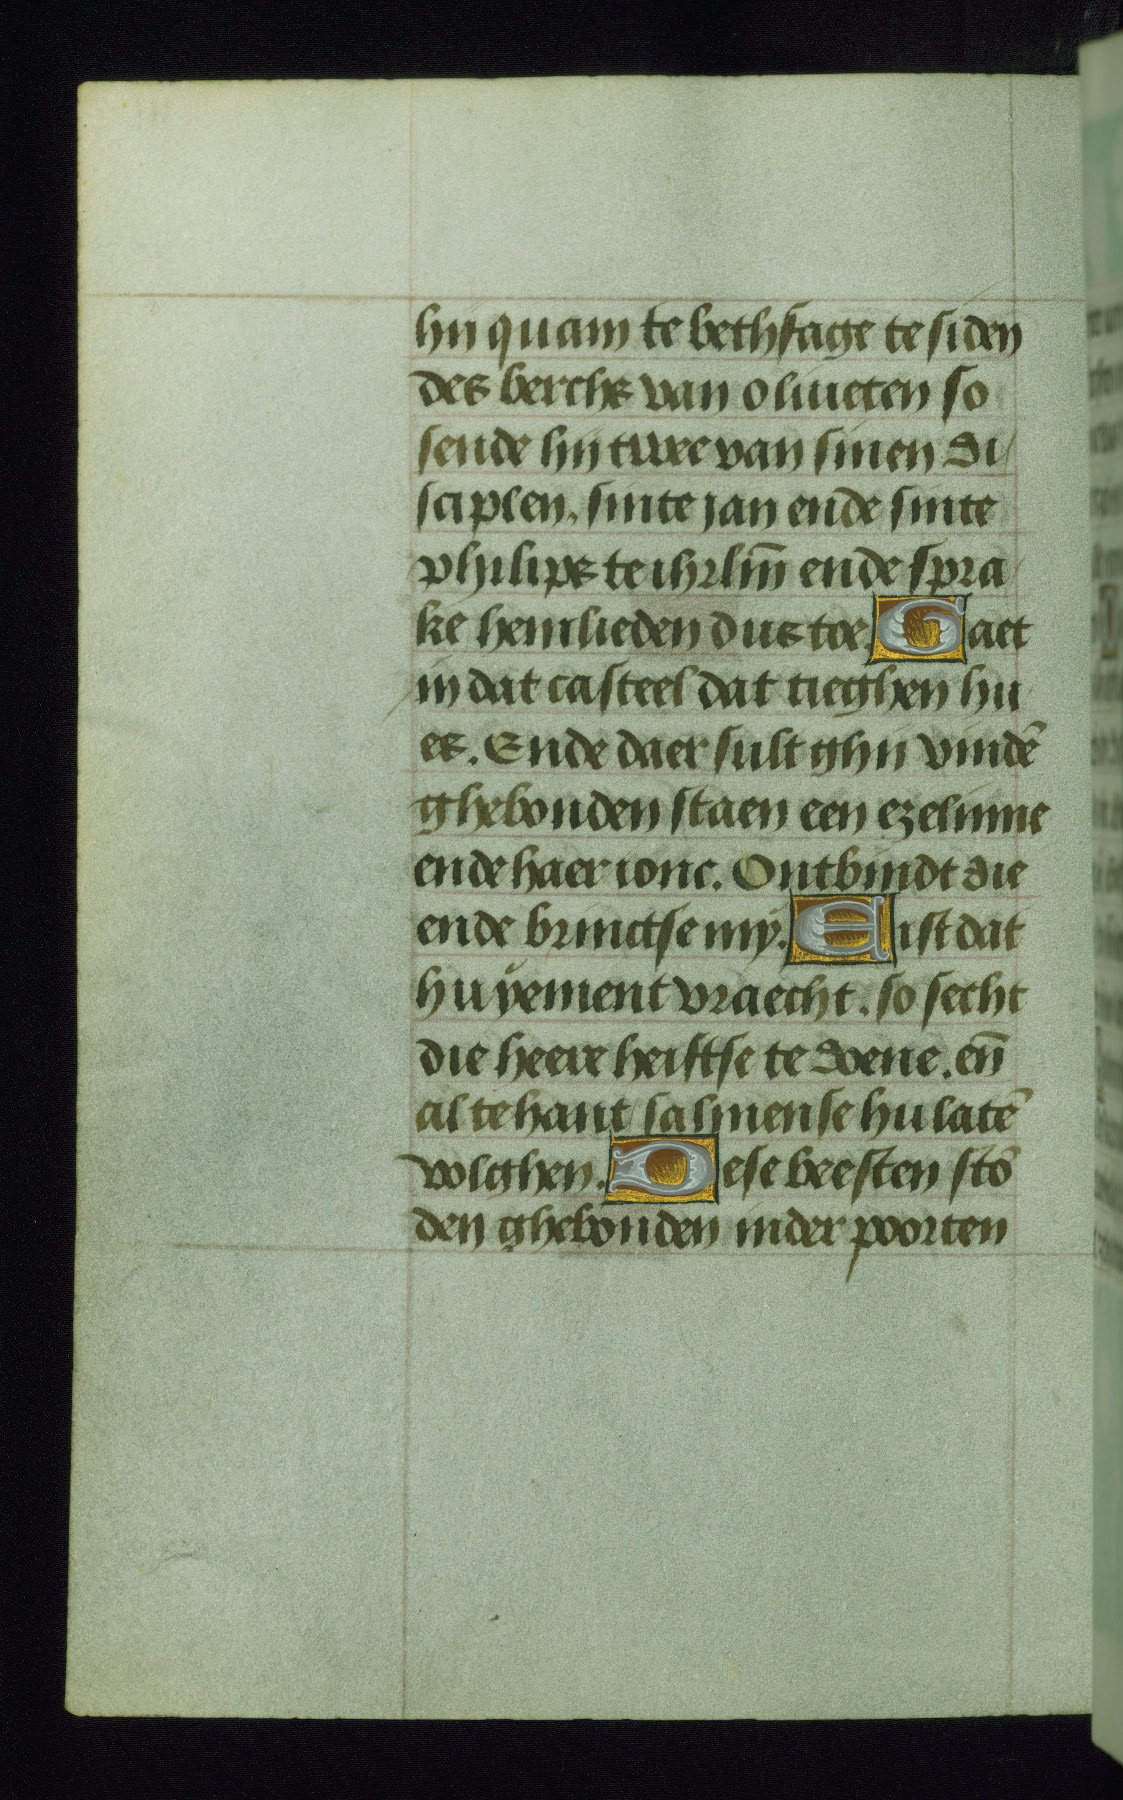 hij quam te bethfage te siden
des berchs van oliueten so
sende hij twee van sinen di/
sciplen. sinte jan ende sinte
philips te ihrlm̄ ende spra/
ke hemlieden dus toe. Gaet
in dat casteel dat tieghen hu
es. Ende daer sult ghij vindē
ghebonden staen een ezelinne
ende haer ionc. Ontbindt die
ende brinctse my. Eist dat
hu yement vraecht. so secht
die heere heiftse te doene. en̄
al te hant salmense hu latē
volghen. Dese beesten stō
den ghebonden inder poorten